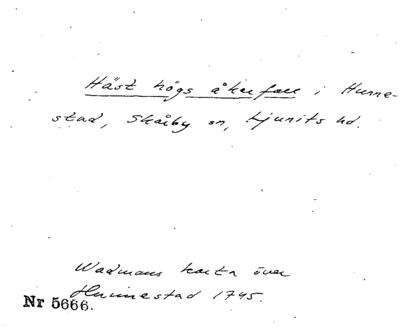 Häst högs åkerfall i Hunne-
stad, Skårby sn, Ljunits hd.
Wadmans karta över
Hunnestad 1745.
Nr 5666.